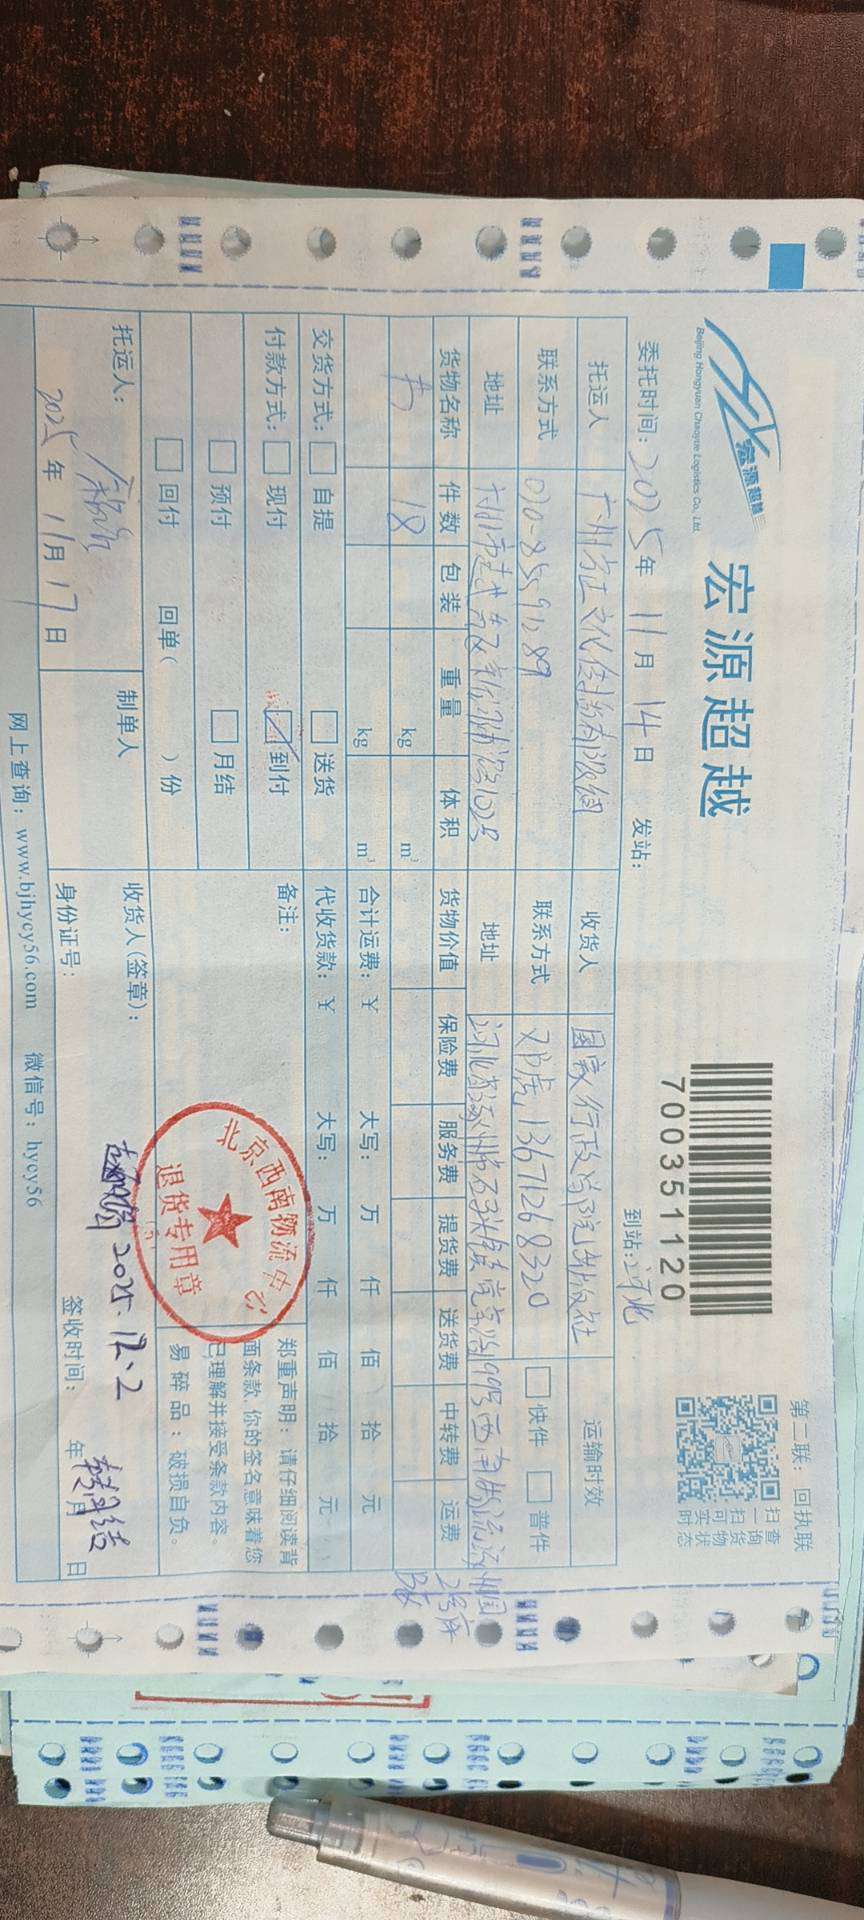 宏源超越
Beijing Hongyuan Chaoyue Logistics Co., Ltd.
宏源超越
7003511120
第二联：回执联
扫一扫可实时
查询货物状态
委托时间：2025年 11月 14日 发站： 到站：河北
托运人 广州方正文化传播有限公司 收货人 国家行政学院出版社 运输时效
联系方式 联系方式 13671268320 快件 普件
地址 地址
货物名称 件数 包装 重量 体积 货物价值 保险费 服务费 提货费 送货费 中转费 运费
书 18 kg m³
kg m³ 合计运费：¥ 大写： 万 仟 佰 拾 元
交货方式： 自提 送货 代收货款：¥ 大写： 万 仟 佰 拾 元
付款方式： 现付 到付 备注：
预付 月结
回付 回单（ ）份
郑重声明：请仔细阅读背
面条款，你的签名意味着您
已理解并接受条款内容。
易碎品：破损自负。
北京西南物流中心
退货专用章
托运人： 制单人 收货人(签章)：
2025.12.2
2025年 11月 17日 身份证号： 签收时间： 年 月 日
网上查询：www.bjhycy56.com 微信号：hycy56